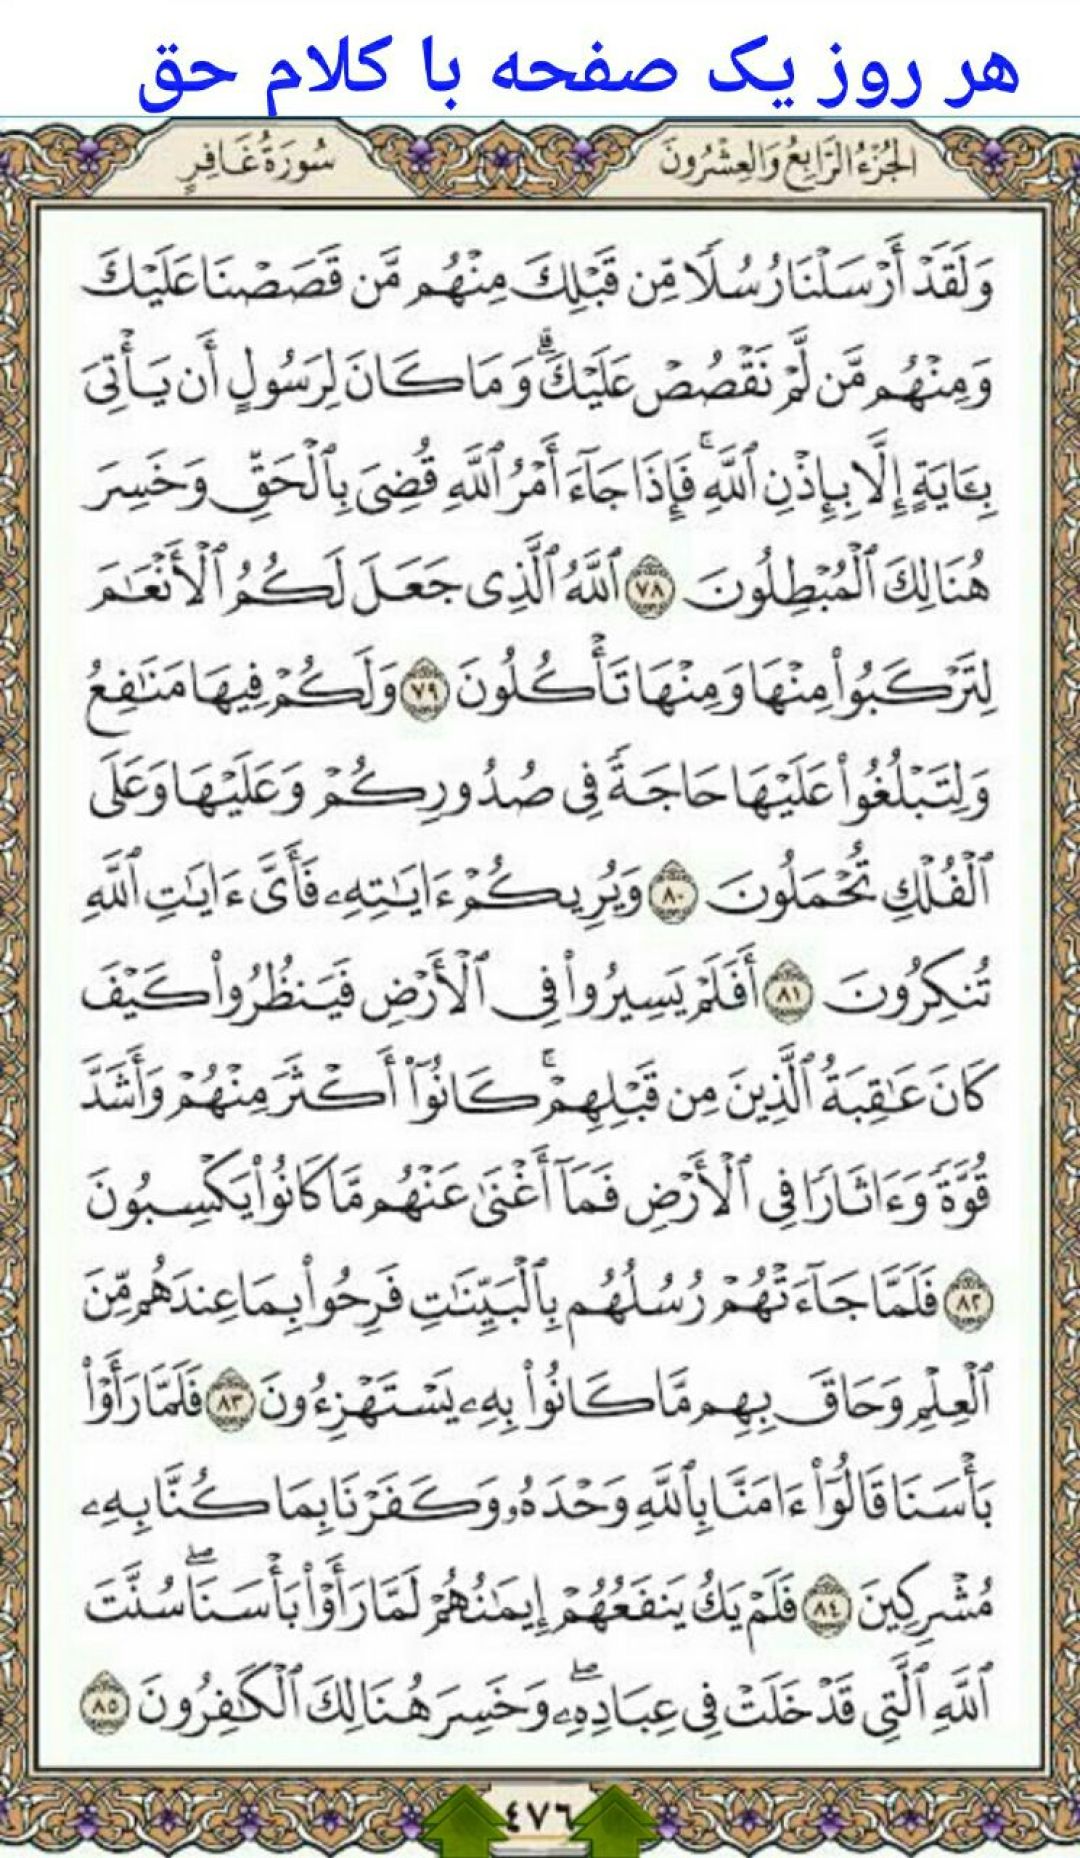 هر روز یک صفحه با کلام حق
الجُزْءُ الرَّابِعُ وَالعِشْرُونَ
سُورَةُ غَافِرٍ
وَلَقَدْ أَرْسَلْنَا رُسُلًا مِّن قَبْلِكَ مِنْهُم مَّن قَصَصْنَا عَلَيْكَ
وَمِنْهُم مَّن لَّمْ نَقْصُصْ عَلَيْكَ ۗ وَمَا كَانَ لِرَسُولٍ أَن يَأْتِيَ
بِـَٔايَةٍ إِلَّا بِإِذْنِ ٱللَّهِ ۚ فَإِذَا جَآءَ أَمْرُ ٱللَّهِ قُضِىَ بِٱلْحَقِّ وَخَسِرَ
هُنَالِكَ ٱلْمُبْطِلُونَ ٧٨ ٱللَّهُ ٱلَّذِى جَعَلَ لَكُمُ ٱلْأَنْعَٰمَ
لِتَرْكَبُوا۟ مِنْهَا وَمِنْهَا تَأْكُلُونَ ٧٩ وَلَكُمْ فِيهَا مَنَٰفِعُ
وَلِتَبْلُغُوا۟ عَلَيْهَا حَاجَةً فِى صُدُورِكُمْ وَعَلَيْهَا وَعَلَى
ٱلْفُلْكِ تُحْمَلُونَ ٨٠ وَيُرِيكُمْ ءَايَٰتِهِۦ فَأَىَّ ءَايَٰتِ ٱللَّهِ
تُنكِرُونَ ٨١ أَفَلَمْ يَسِيرُوا۟ فِى ٱلْأَرْضِ فَيَنظُرُوا۟ كَيْفَ
كَانَ عَٰقِبَةُ ٱلَّذِينَ مِن قَبْلِهِمْ ۚ كَانُوٓا۟ أَكْثَرَ مِنْهُمْ وَأَشَدَّ
قُوَّةً وَءَاثَارًا فِى ٱلْأَرْضِ فَمَآ أَغْنَىٰ عَنْهُم مَّا كَانُوا۟ يَكْسِبُونَ
٨٢ فَلَمَّا جَآءَتْهُمْ رُسُلُهُم بِٱلْبَيِّنَٰتِ فَرِحُوا۟ بِمَا عِندَهُم مِّنَ
ٱلْعِلْمِ وَحَاقَ بِهِم مَّا كَانُوا۟ بِهِۦ يَسْتَهْزِءُونَ ٨٣ فَلَمَّا رَأَوْا۟
بَأْسَنَا قَالُوٓا۟ ءَامَنَّا بِٱللَّهِ وَحْدَهُۥ وَكَفَرْنَا بِمَا كُنَّا بِهِۦ
مُشْرِكِينَ ٨٤ فَلَمْ يَكُ يَنفَعُهُمْ إِيمَٰنُهُمْ لَمَّا رَأَوْا۟ بَأْسَنَا ۖ سُنَّتَ
ٱللَّهِ ٱلَّتِى قَدْ خَلَتْ فِى عِبَادِهِۦ ۖ وَخَسِرَ هُنَالِكَ ٱلْكَٰفِرُونَ ٨٥
٤٧٦